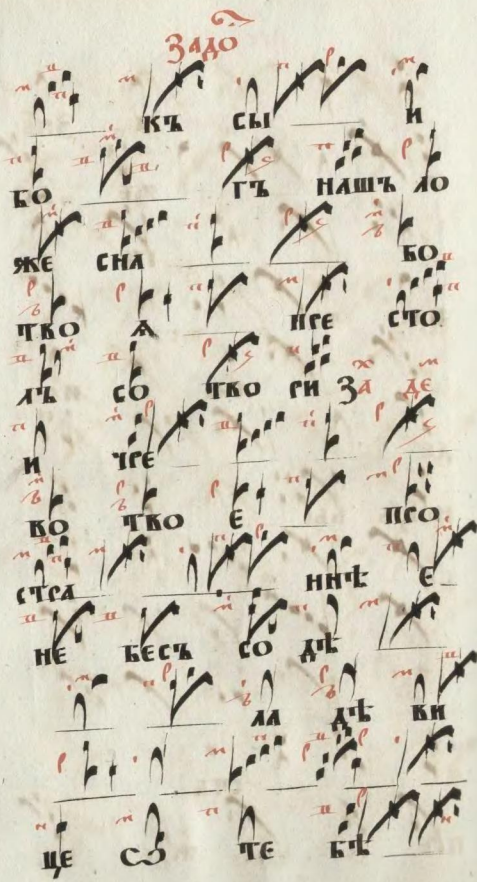 Задо
къ сы и
бо гъ нашъ ло
же сна бо
тво ѧ пре сто
лъ со тво ри За де
и чре
во тво е про
стра ннѣ е
не бесъ со дѣ
ла дѣ ви
це ѡ те бѣ